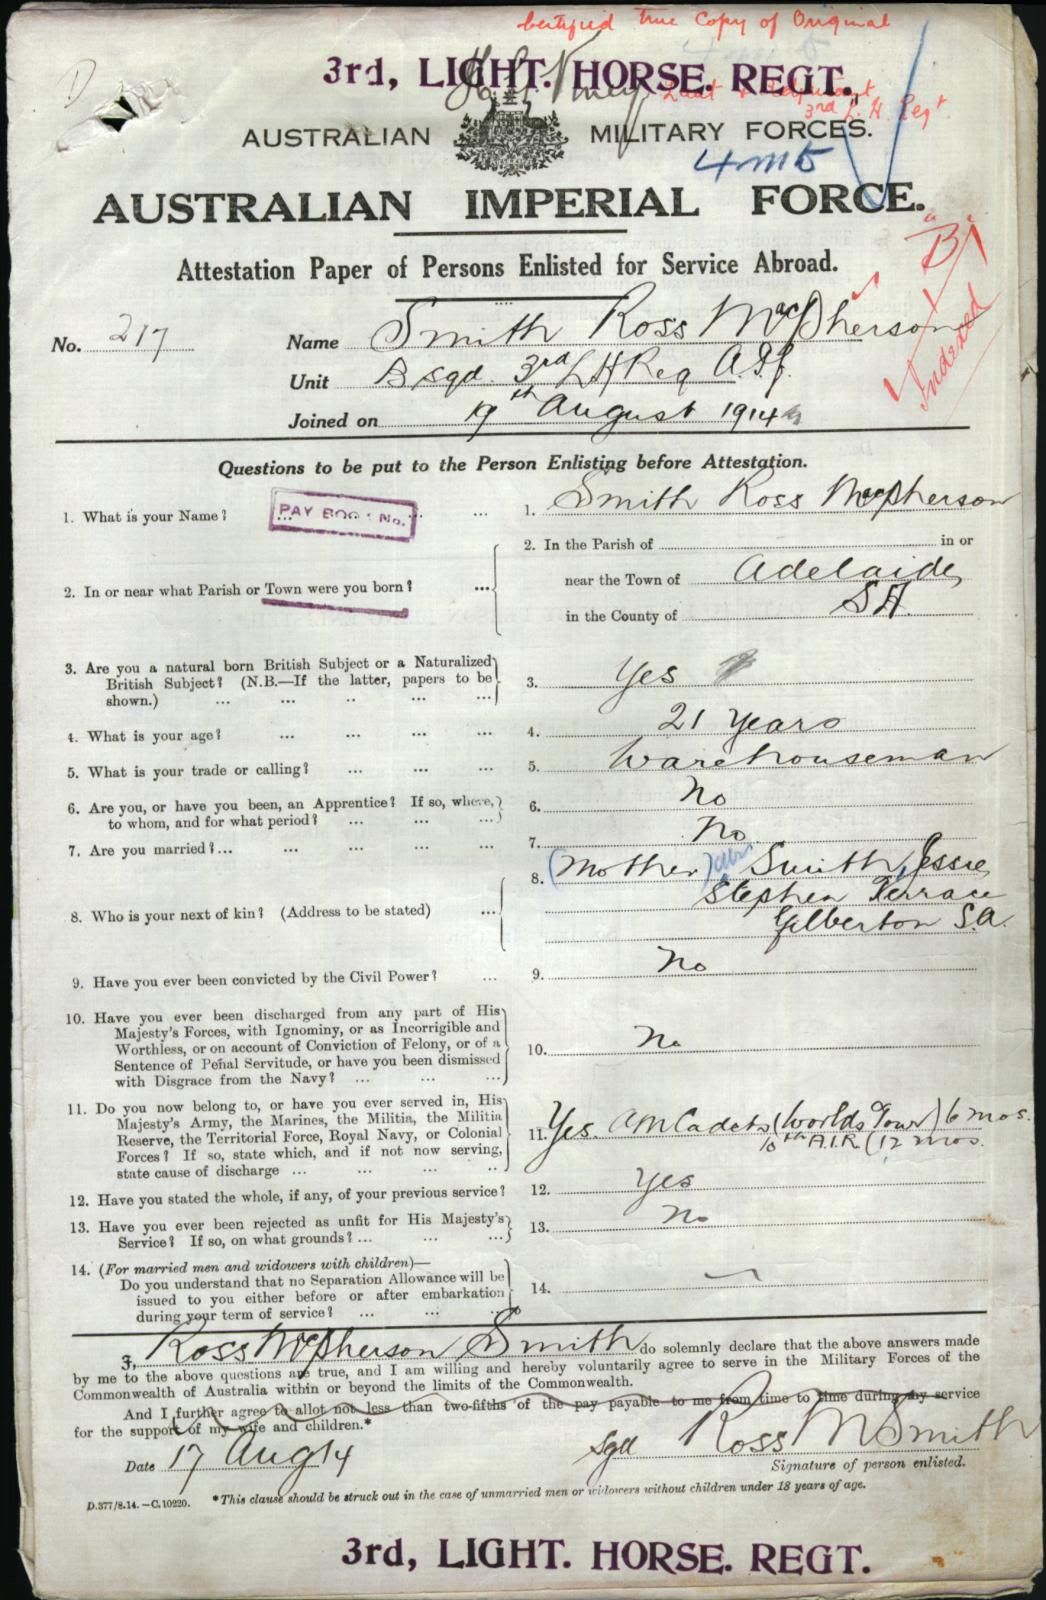 Certified true Copy of Original
3rd, LIGHT. HORSE. REGT.
Lieut & Adjutant
3rd L. H. Regt.
AUSTRALIAN MILITARY FORCES.
4 m 5
AUSTRALIAN IMPERIAL FORCE.
"B"
Indexed
Attestation Paper of Persons Enlisted for Service Abroad.
No. 217 Name Smith Ross MacPherson
Unit B Sqd. 3rd L H Reg A.I.F.
Joined on 19th August 1914
Questions to be put to the Person Enlisting before Attestation.
1. What is your Name? ... ... 1. Smith Ross MacPherson
PAY BOOK No.
2. In or near what Parish or Town were you born? ... 2. In the Parish of in or
near the Town of Adelaide
in the County of SA.
3. Are you a natural born British Subject or a Naturalized
British Subject? (N.B.—If the latter, papers to be
shown.) ... ... ... ... ... 3. Yes
4. What is your age? ... ... ... 4. 21 Years
5. What is your trade or calling? ... ... ... 5. Warehouseman
6. Are you, or have you been, an Apprentice? If so, where,
to whom, and for what period? ... ... ... 6. No
7. Are you married? ... ... ... ... 7. No
8. Who is your next of kin? (Address to be stated) ... 8. (Mother) Smith, Jessie,
Stephen Terrace
Gilberton S.A.
9. Have you ever been convicted by the Civil Power? ... 9. No
10. Have you ever been discharged from any part of His
Majesty's Forces, with Ignominy, or as Incorrigible and
Worthless, or on account of Conviction of Felony, or of a
Sentence of Penal Servitude, or have you been dismissed
with Disgrace from the Navy? ... ... ... 10. No
11. Do you now belong to, or have you ever served in, His
Majesty's Army, the Marines, the Militia, the Militia
Reserve, the Territorial Force, Royal Navy, or Colonial
Forces? If so, state which, and if not now serving,
state cause of discharge ... ... ... 11. Yes. AM Cadets (Worlds Tour) 6 mos.
10th A.I.R. (12 mos.
12. Have you stated the whole, if any, of your previous service? 12. Yes
13. Have you ever been rejected as unfit for His Majesty's
Service? If so, on what grounds? ... ... ... 13. No
14. (For married men and widowers with children)—
Do you understand that no Separation Allowance will be
issued to you either before or after embarkation
during your term of service? ... ... ... 14. —
I, Ross MacPherson Smith do solemnly declare that the above answers made
by me to the above questions are true, and I am willing and hereby voluntarily agree to serve in the Military Forces of the
Commonwealth of Australia within or beyond the limits of the Commonwealth.
And I further agree to allot not less than two-fifths of the pay payable to me from time to time during my service
for the support of my wife and children.*
Date 17 Aug 14 Sgd Ross M Smith
Signature of person enlisted.
D.377/8.14.—C.10220. *This clause should be struck out in the case of unmarried men or widowers without children under 18 years of age.
3rd, LIGHT. HORSE. REGT.